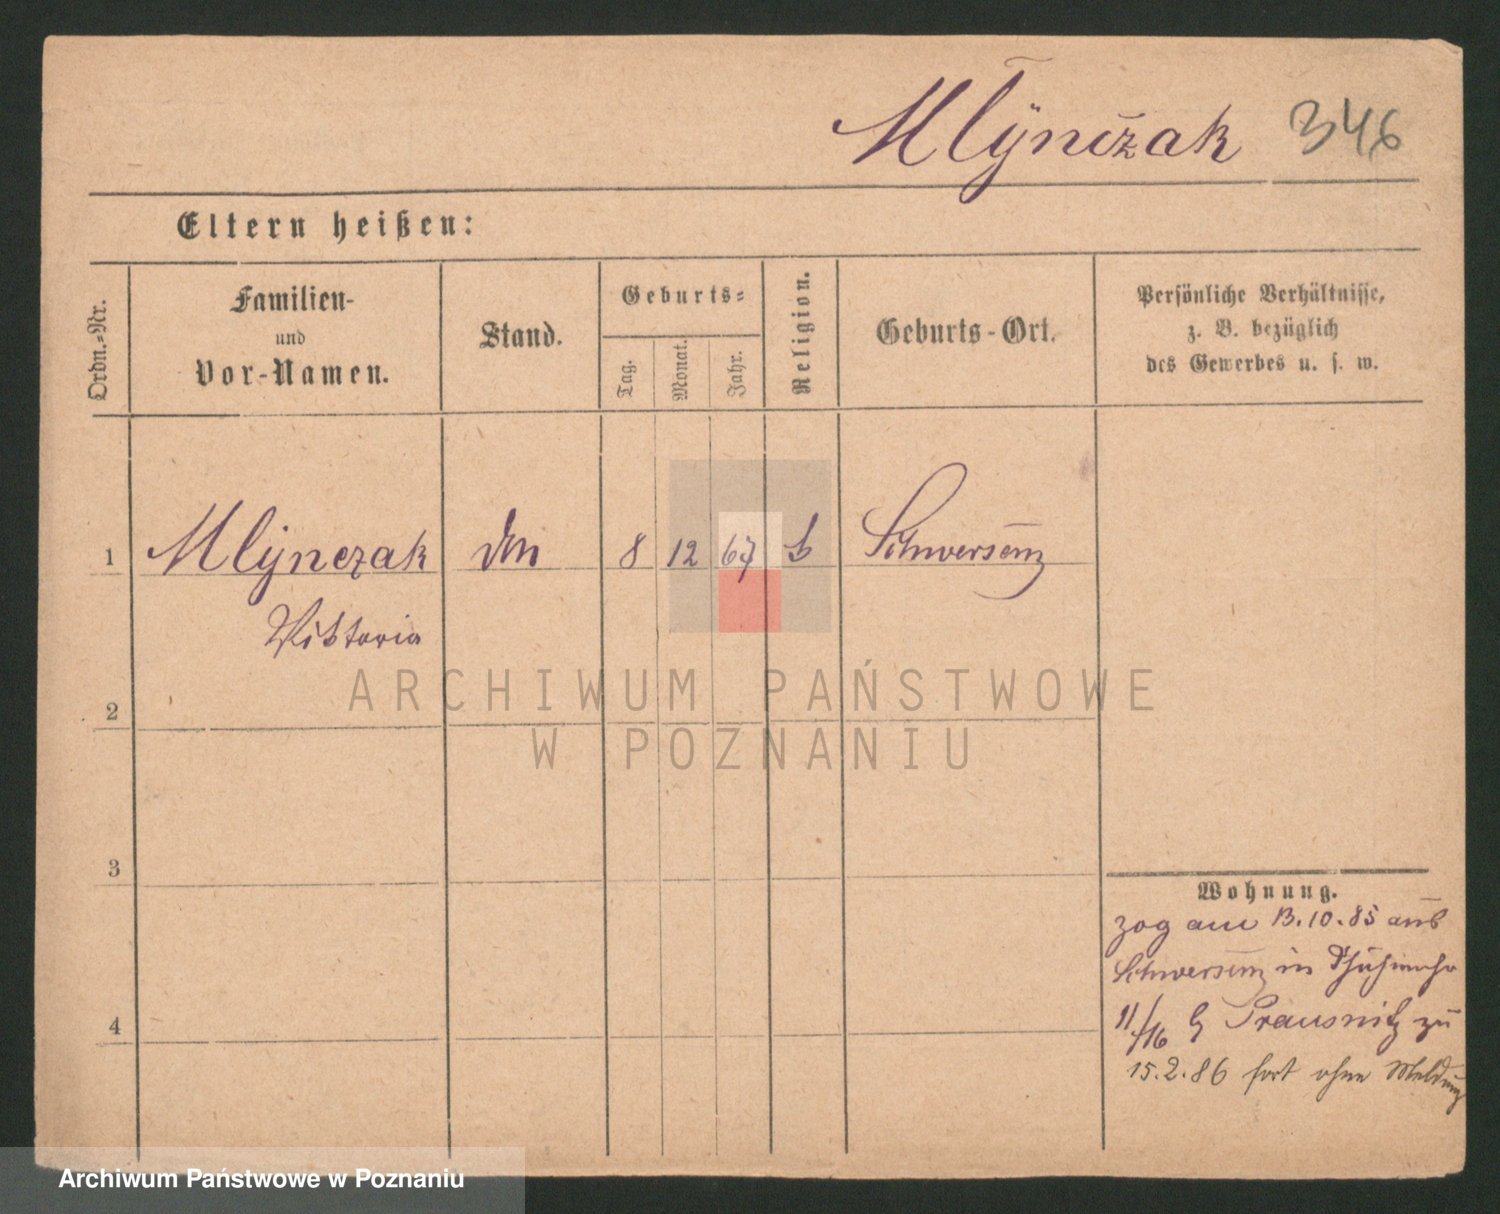 Mlynczak 346
Eltern heißen:
Ordn.-Nr.
Familien-
und
Vor-Namen.
Stand.
Geburts-
Tag.
Monat.
Jahr.
Religion.
Geburts-Ort.
Persönliche Verhältnisse,
z. B. bezüglich
des Gewerbes u. s. w.
1 Mlynczak 8 12 67 Schwersenz
Viktoria
2
3
4
Wohnung.
zog am 13.10.85 aus
Schwersenz in
11/16 Prausnitz zu
15.2.86 fort ohne Meldung
ARCHIWUM PAŃSTWOWE
W POZNANIU
Archiwum Państwowe w Poznaniu